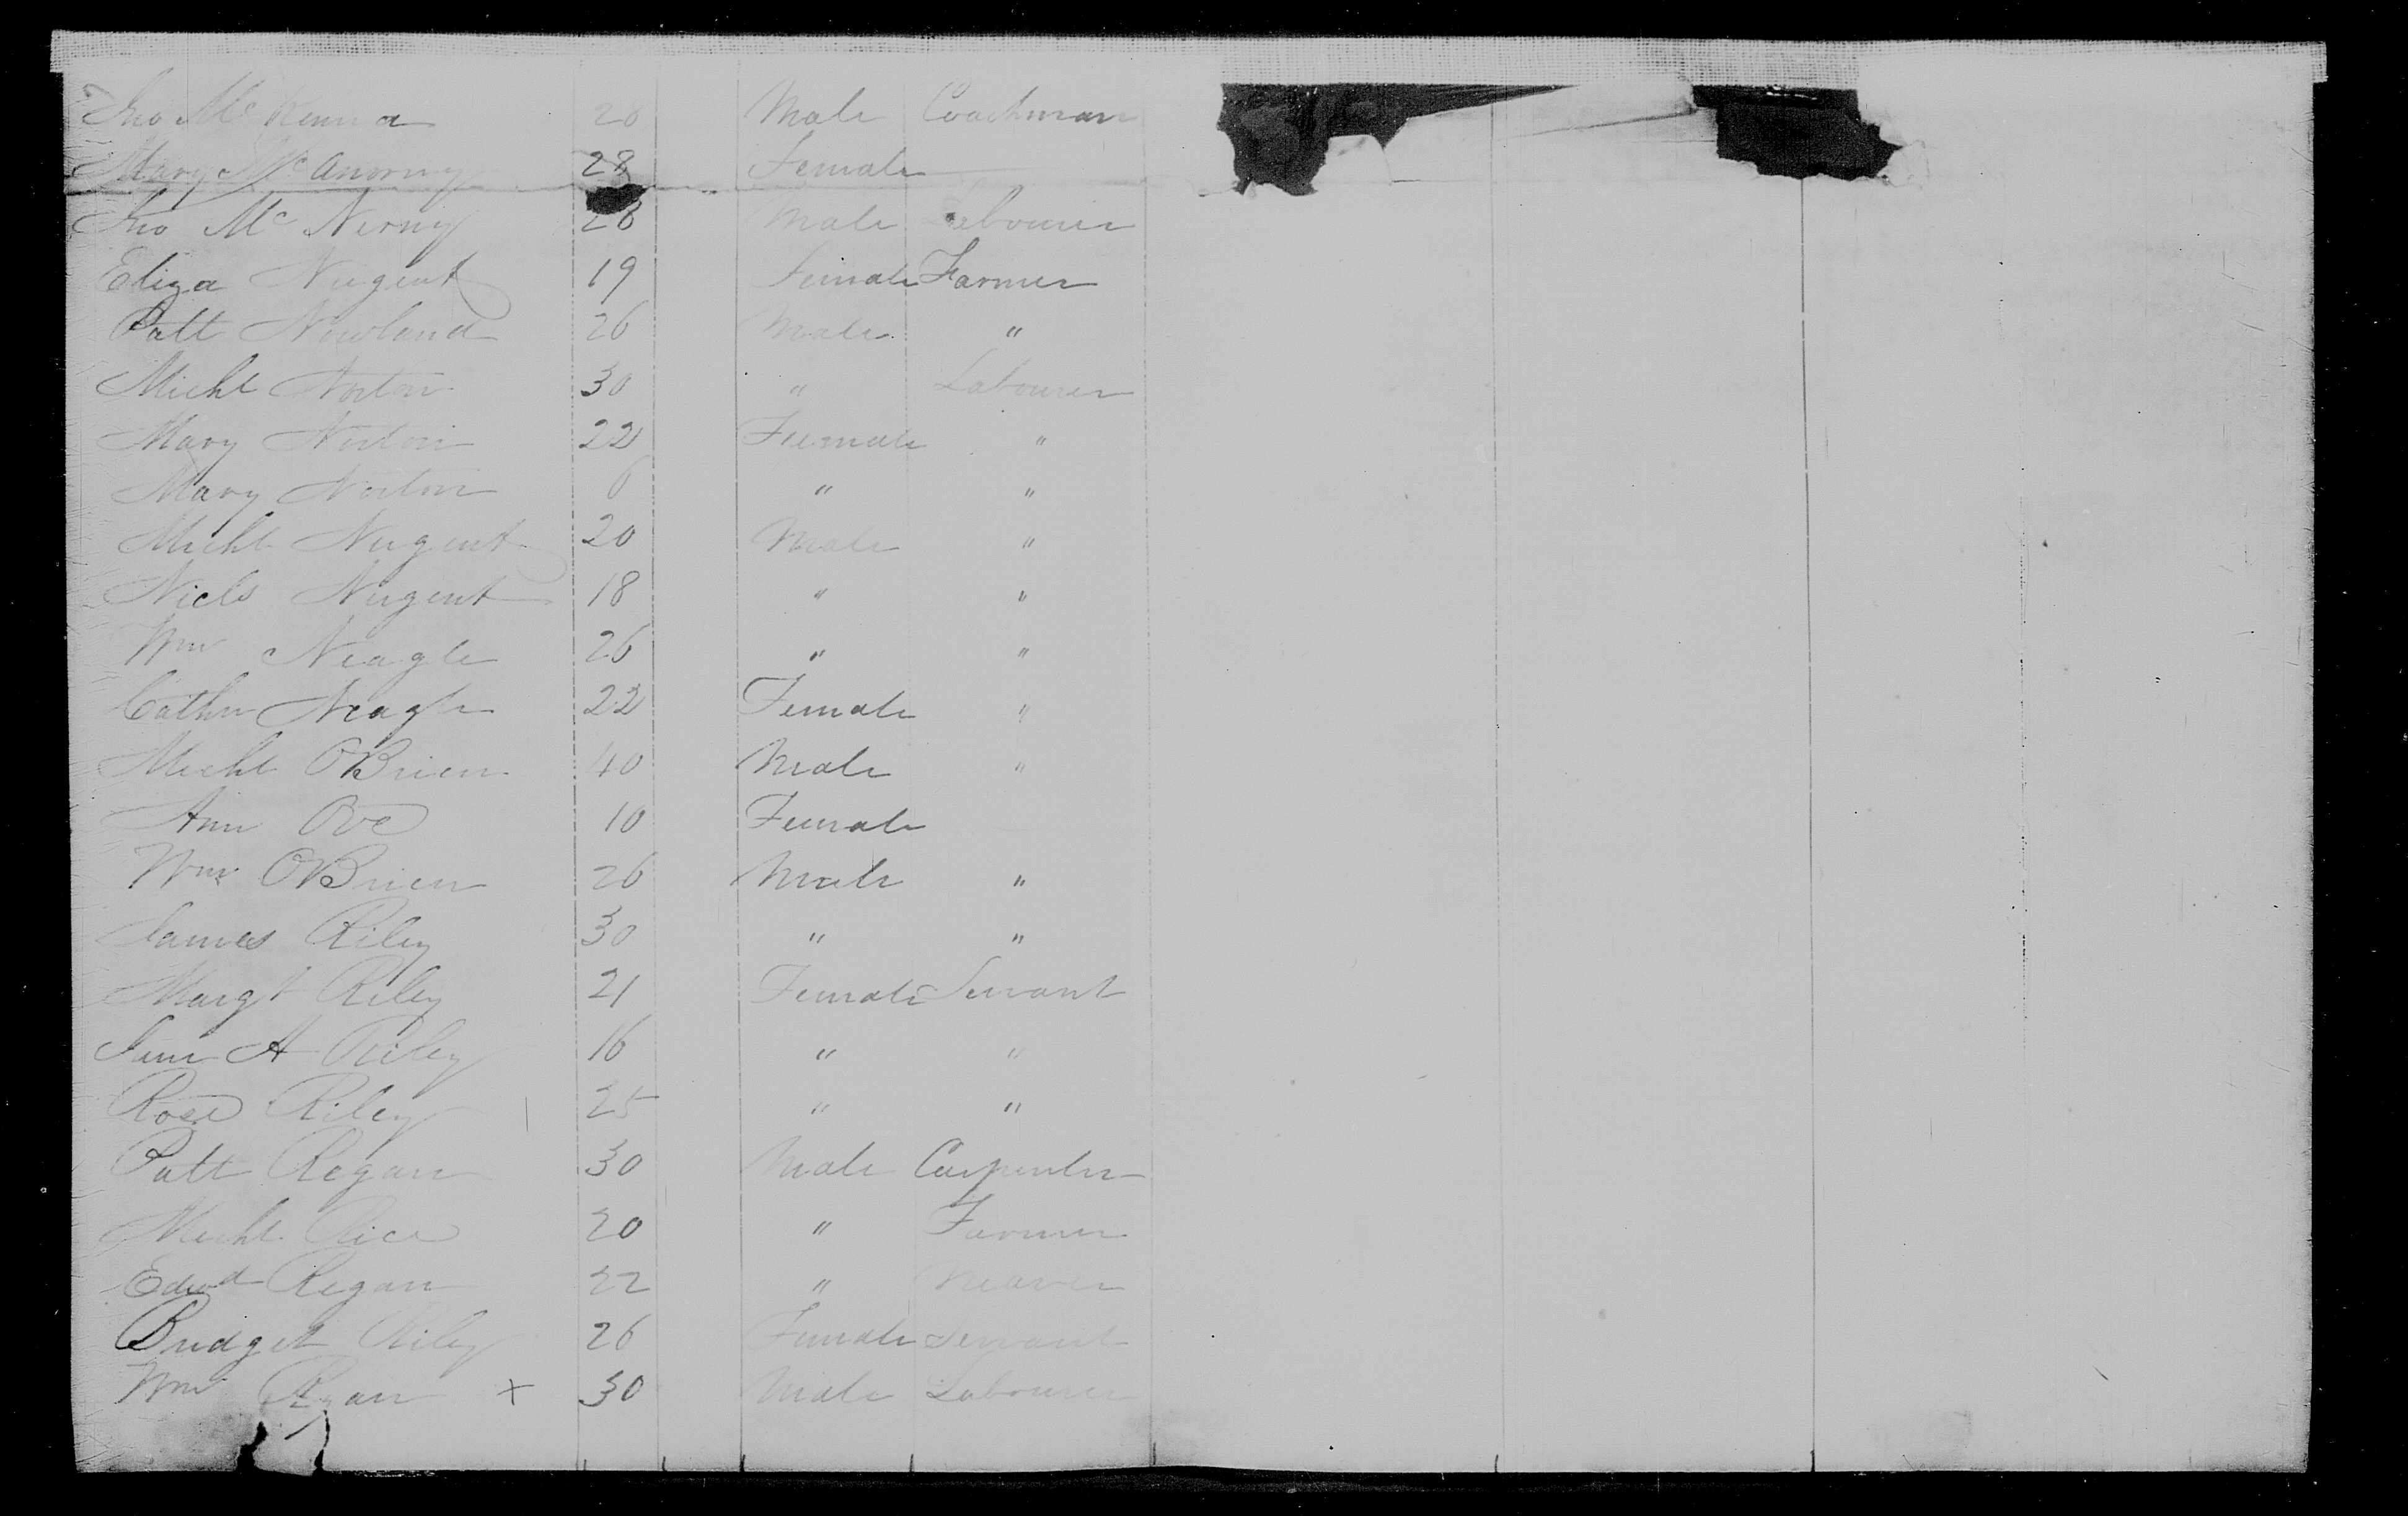 Jno McKenna 20 Male Coachman
Mary McAnorny 28 Female
Jno McNerny 28 Male Labourer
Eliza Nugent 19 Female Farmer
Patt Nowland 26 Male "
Michl Norton 30 " Labourer
Mary Norton 22 Female "
Mary Norton 6 " "
Michl Nugent 20 Male "
Nichs Nugent 18 " "
Wm Neagle 26 " "
Cathn Neagle 22 Female "
Michl OBrien 40 Male "
Ann 10 Female
Wm OBrien 26 Male "
James Riley 30 " "
Margt Riley 21 Female Servant
A Riley 16 " "
Rose Riley 25 " "
Patt Regan 30 Male Carpenter
Michl Rice 20 " Farmer
Edwd Regan 22 " Weaver
Bridget Riley 26 Female Servant
Wm Ryan x 30 Male Labourer